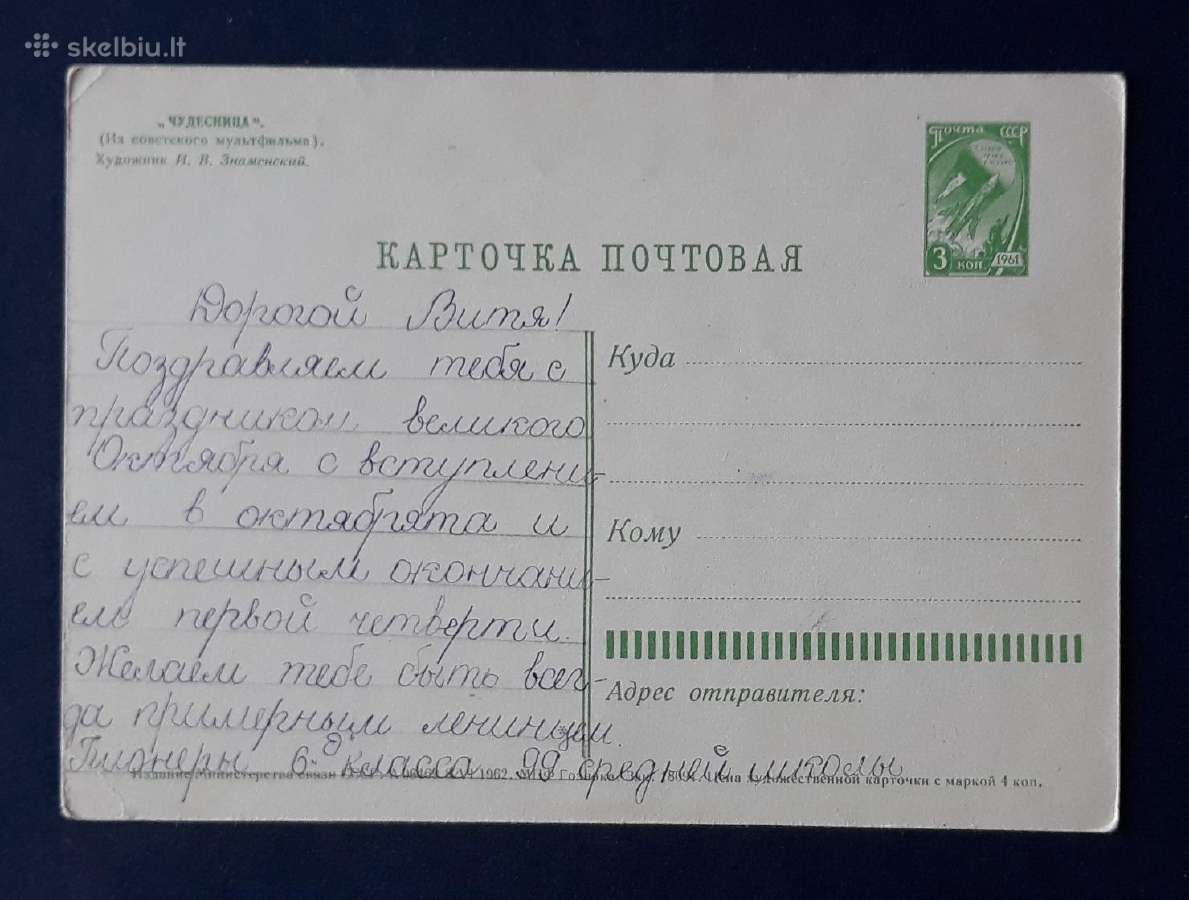 skelbiu.lt
„ЧУДЕСНИЦА".
(Из советского мультфильма).
Художник И. В. Знаменский.
Почта СССР
3 КОП 1961
КАРТОЧКА ПОЧТОВАЯ
Дорогой Витя!
Поздравляем тебя с
праздником великого
Октября с вступлени-
ем в октябрята и
с успешным окончани-
ем первой четверти.
Желаем тебе быть всег-
да примерным ленинцем.
Пионеры 6 класса 99 средней школы
Куда
Кому
Адрес отправителя:
Издание Министерства связи 1962. Цена художественной карточки с маркой 4 коп.